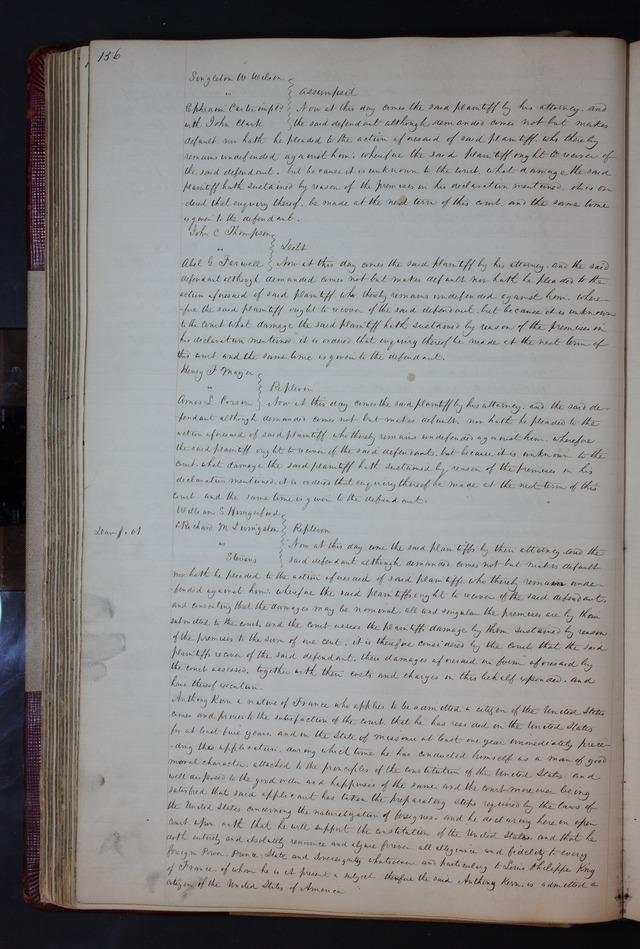 156
Singleton W Wilson
"
assumpsit
Ephraim Carter impl?
Now at this day comes the said plaintiff by his attorney, and
with John Clark
the said defendant although demanded comes not but makes
default nor hath he pleaded to the action aforesaid of said plaintiff, who thereby
remains undefended against him; wherefore the said plaintiff ought to recover of
the said defendant, but because it is unknown to the court, what damage the said
plaintiff hath sustained by reason of the premises in his declaration mentioned, it is or-
dered that enquiry thereof, be made at the next term of this court and the same time
is given to the defendant.
John C Thompson
"
Debt
Abel E Farwell
Now at this day comes the said plaintiff by his attorney, and the said
defendant although demanded comes not but makes default nor hath he pleaded to the
action aforesaid of said plaintiff who thereby remains undefended against him, where-
-fore the said plaintiff ought to recover of the said defendant, but because it is unknown
to the court what damage the said plaintiff hath sustained by reason of the premises in
his declaration mentioned, it is ordered that enquiry thereof be made at the next term of
this court and the same time is given to the defendant.
Henry F Mayer
"
Replevin
Amos L Corson
Now at this day comes the said plaintiff by his attorney, and the said de-
fendant although demanded comes not but makes default, nor hath he pleaded to the
action aforesaid of said plaintiff who thereby remains undefended against him, wherefore
the said plaintiff ought to recover of the said defendant, but because it is unknown to the
court what damage the said plaintiff hath sustained by reason of the premises in his
declaration mentioned, it is ordered that enquiry thereof be made at the next term of this
court and the same time is given to the defendant.
William S Hungerford
& Richard M Livingston
Replevin
Dam $ .01
vs
Now at this day come the said plaintiffs by their attorney and the
Stevens
said defendant although demanded comes not but makes default
nor hath he pleaded to the action aforesaid of said plaintiff, who thereby remain unde-
-fended against him, wherefore the said plaintiffs ought to recover of the said defendant,
and consenting that the damages may be nominal, all and singular the premises are by them
submitted to the court, and the court assess the plaintiffs damage by them sustained by reason
of the premises to the sum of one cent, it is therefore considered by the court that the said
plaintiffs recover of the said defendant, their damages aforesaid in form aforesaid by
the court assessed, together with their costs and charges in this behalf expended, and
have thereof execution.
Anthony Kern a native of France who applies to be admitted a citizen of the United States
comes and proves to the satisfaction of the court, that he has resided in the United States
for at least five years and in the State of Missouri at least one year immediately prece-
-ding this application, during which time he has conducted himself as a man of good
moral character, attached to the principles of the constitution of the United States, and
well disposed to the good order and happiness of the same and the court moreover being
satisfied that said applicant has taken the preparatory steps required by the laws of
the United States concerning the naturalization of foreigners, and he declaring here in open
court upon oath that he will support the constitution of the United States and that he
doth entirely and absolutely renounce and abjure forever all allegiance and fidelity to every
foreign Power, Prince, State and Sovereignty whatsoever and particularly to Louis Philippe King
of France of whom he is at present a subject. therefore the said Anthony Kern, is admitted a
citizen of the United States of America